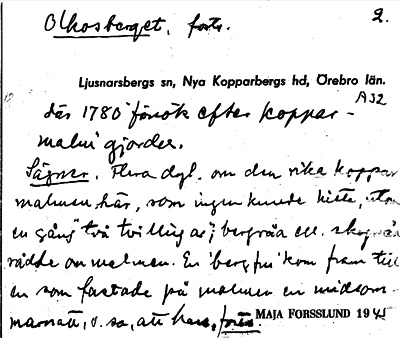 Olkosberget, forts. 2.
Ljusnarsbergs sn, Nya Kopparbergs hd, Örebro län.
A32
där 1780 försök efter koppar-
malm gjordes.
Sägner. Flera dyl. om den rika koppar
malmen här, som ingen kunde hitta, utom
en gång två tvillingar; bergråa ell. skogsråa
rådde om malmen. En "bergfru" kom fram till
en som fastade på malmen en midsom-
marnatt, o. sa, att hans, forts. MAJA FORSSLUND 1941